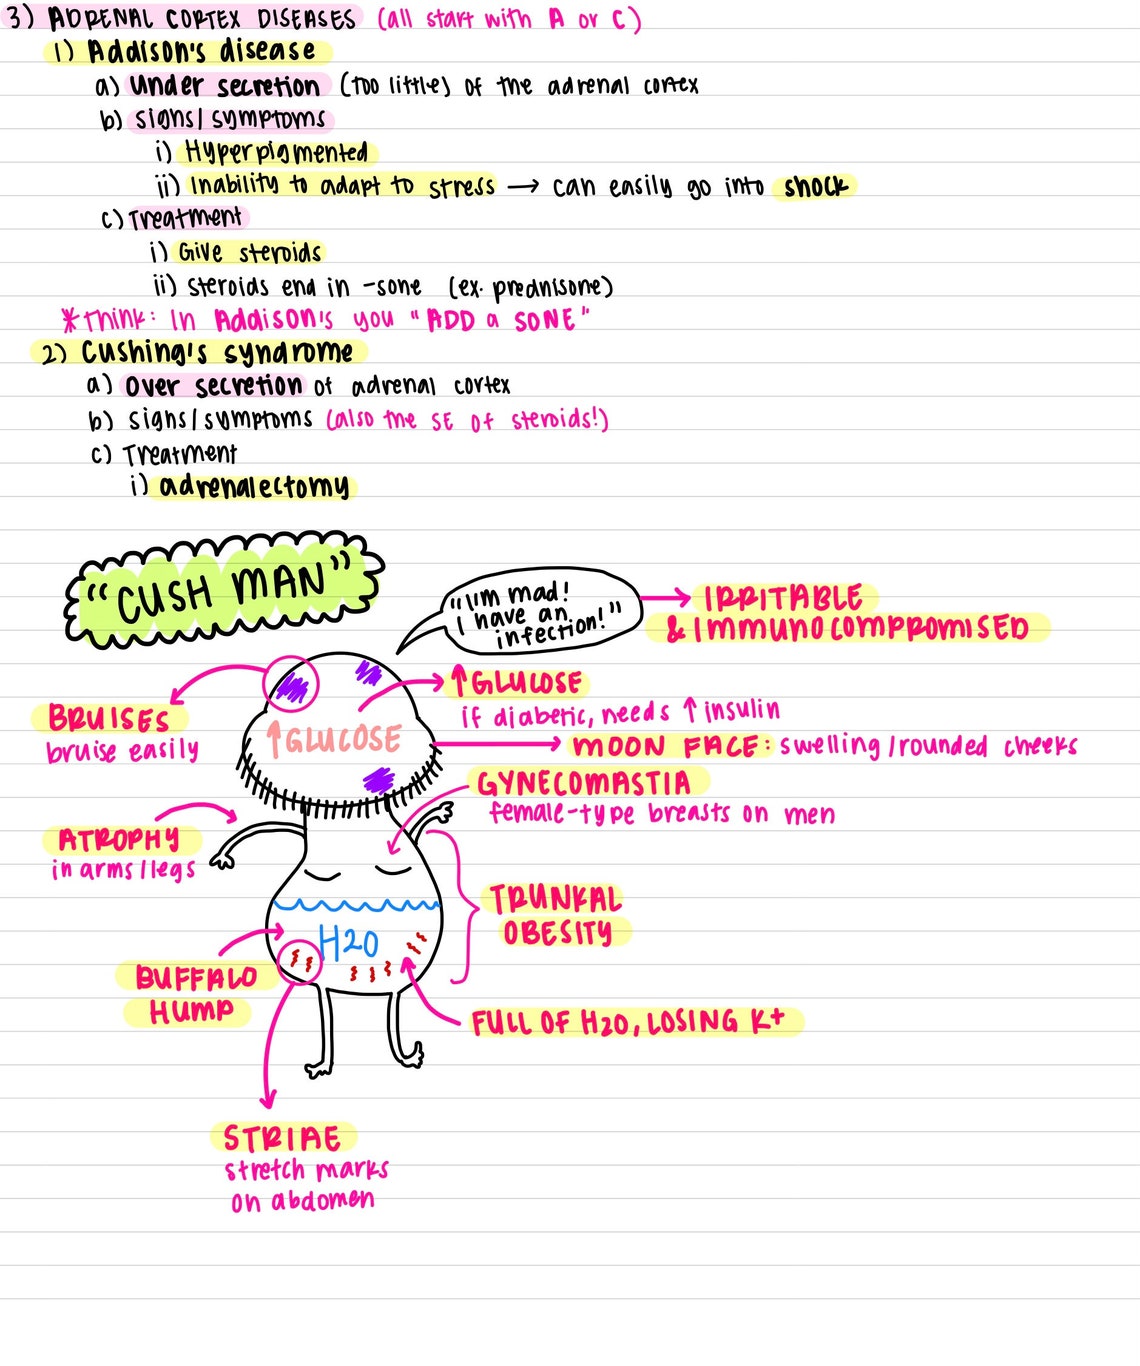 3) ADRENAL CORTEX DISEASES (all start with A or C)
1) Addison's disease
a) under secretion (too little) of the adrenal cortex
b) signs/symptoms
i) Hyperpigmented
ii) Inability to adapt to stress → can easily go into shock
c) Treatment
i) Give steroids
ii) steroids end in -sone (ex. prednisone)
*Think: In Addison's you "ADD a SONE"
2) Cushing's syndrome
a) over secretion of adrenal cortex
b) signs/symptoms (also the SE of steroids!)
c) Treatment
i) adrenalectomy
"CUSH MAN"
"I'm mad!
i have an
infection!"
IRRITABLE
& IMMUNOCOMPROMISED
↑GLUCOSE
if diabetic, needs ↑ insulin
BRUISES
bruise easily
↑GLUCOSE
MOON FACE: swelling/rounded cheeks
GYNECOMASTIA
female-type breasts on men
ATROPHY
in arms/legs
TRUNKAL
OBESITY
H2O
BUFFALO
HUMP
FULL OF H2O, LOSING K+
STRIAE
stretch marks
on abdomen